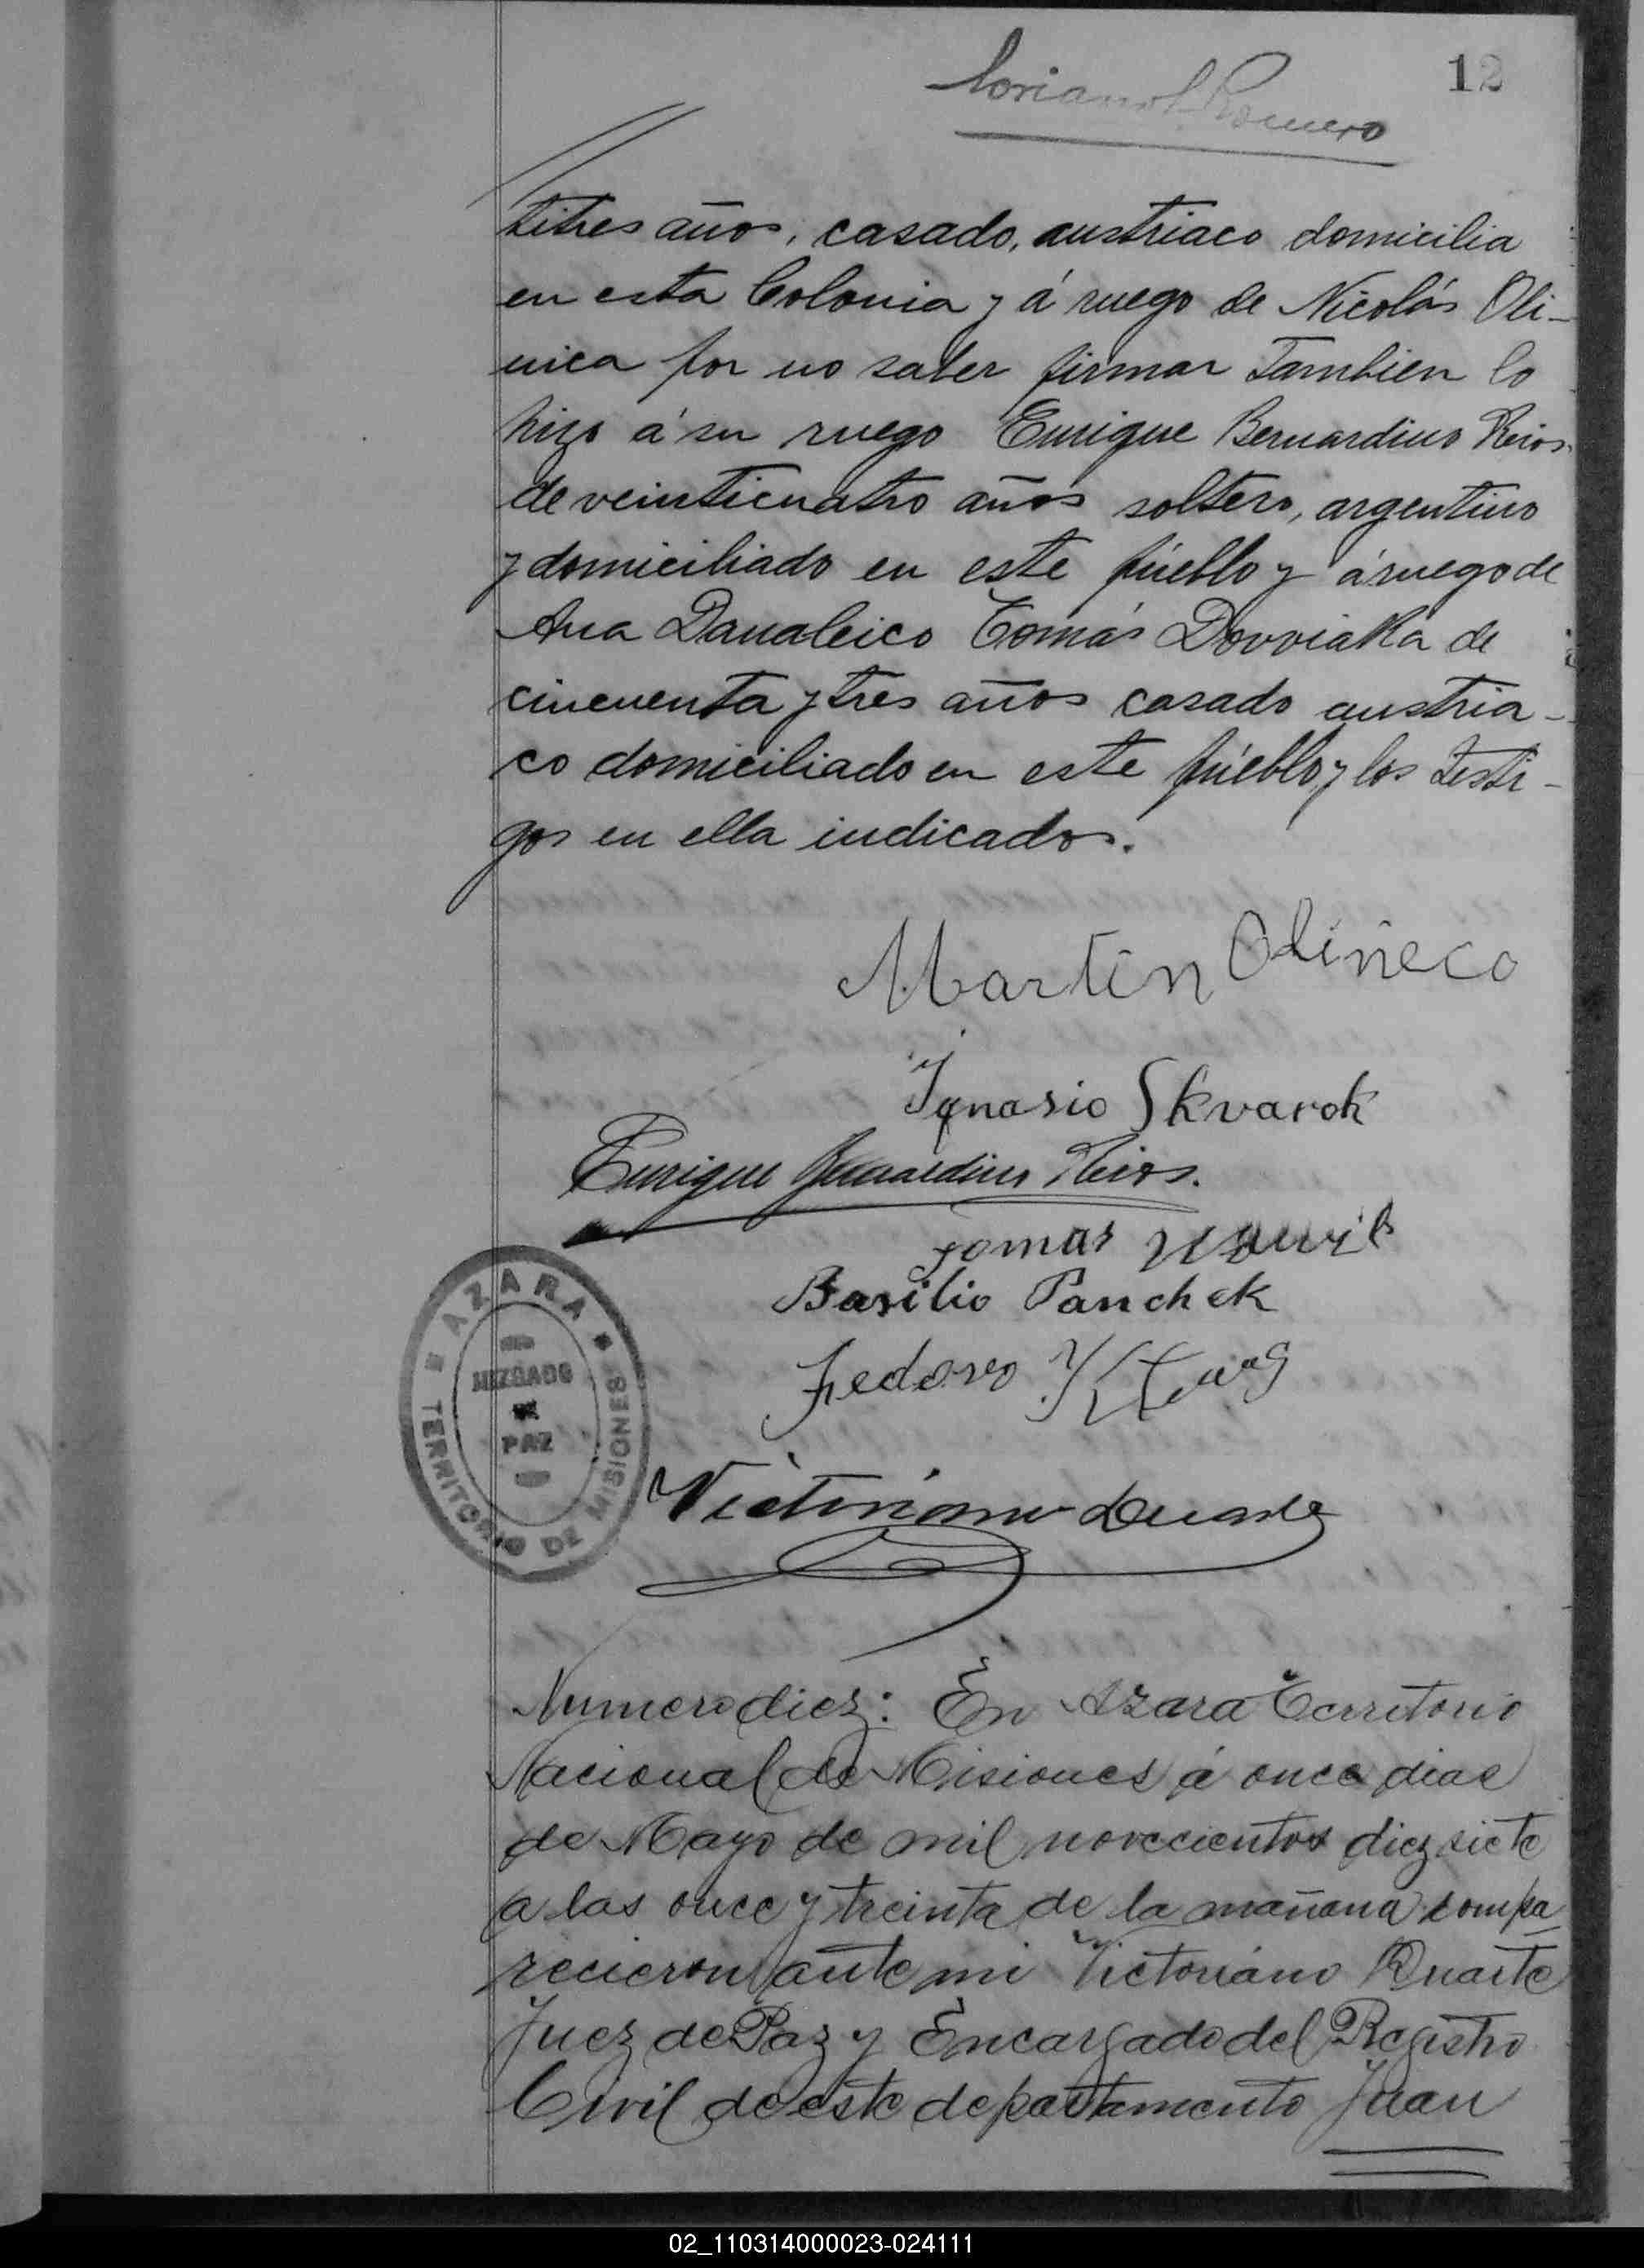 12
Romero
titres años, casado, austriaco domicilia
en esta Colonia y á ruego de Nicolás Oli-
nica por no saber firmar tambien lo
hizo á su ruego Enrique Bernardino Reios
de veinticuatro años soltero, argentino
y domiciliado en este pueblo y á ruego de
Ana Danaleico Tomás Dovviaka de
cincuenta y tres años casado austria-
co domiciliado en este pueblo y los testi-
gos en ella indicados.
Martin Olineco
Ignasio Skvarok
Enrique Bernardino Reios.
Tomas
Basilio Panchek
Fedoro
AZARA
JUZGADO
DE
PAZ
TERRITORIO DE MISIONES
Victoriano Duarte
Numero diez: En Azara Territorio
Nacional de Misiones á once dias
de Mayo de mil novecientos diez siete
a las once y treinta de la mañana compa
recieron ante mi Victoriano Duarte
Juez de Paz y Encargado del Registro
Civil de este departamento Juan
02_110314000023-024111